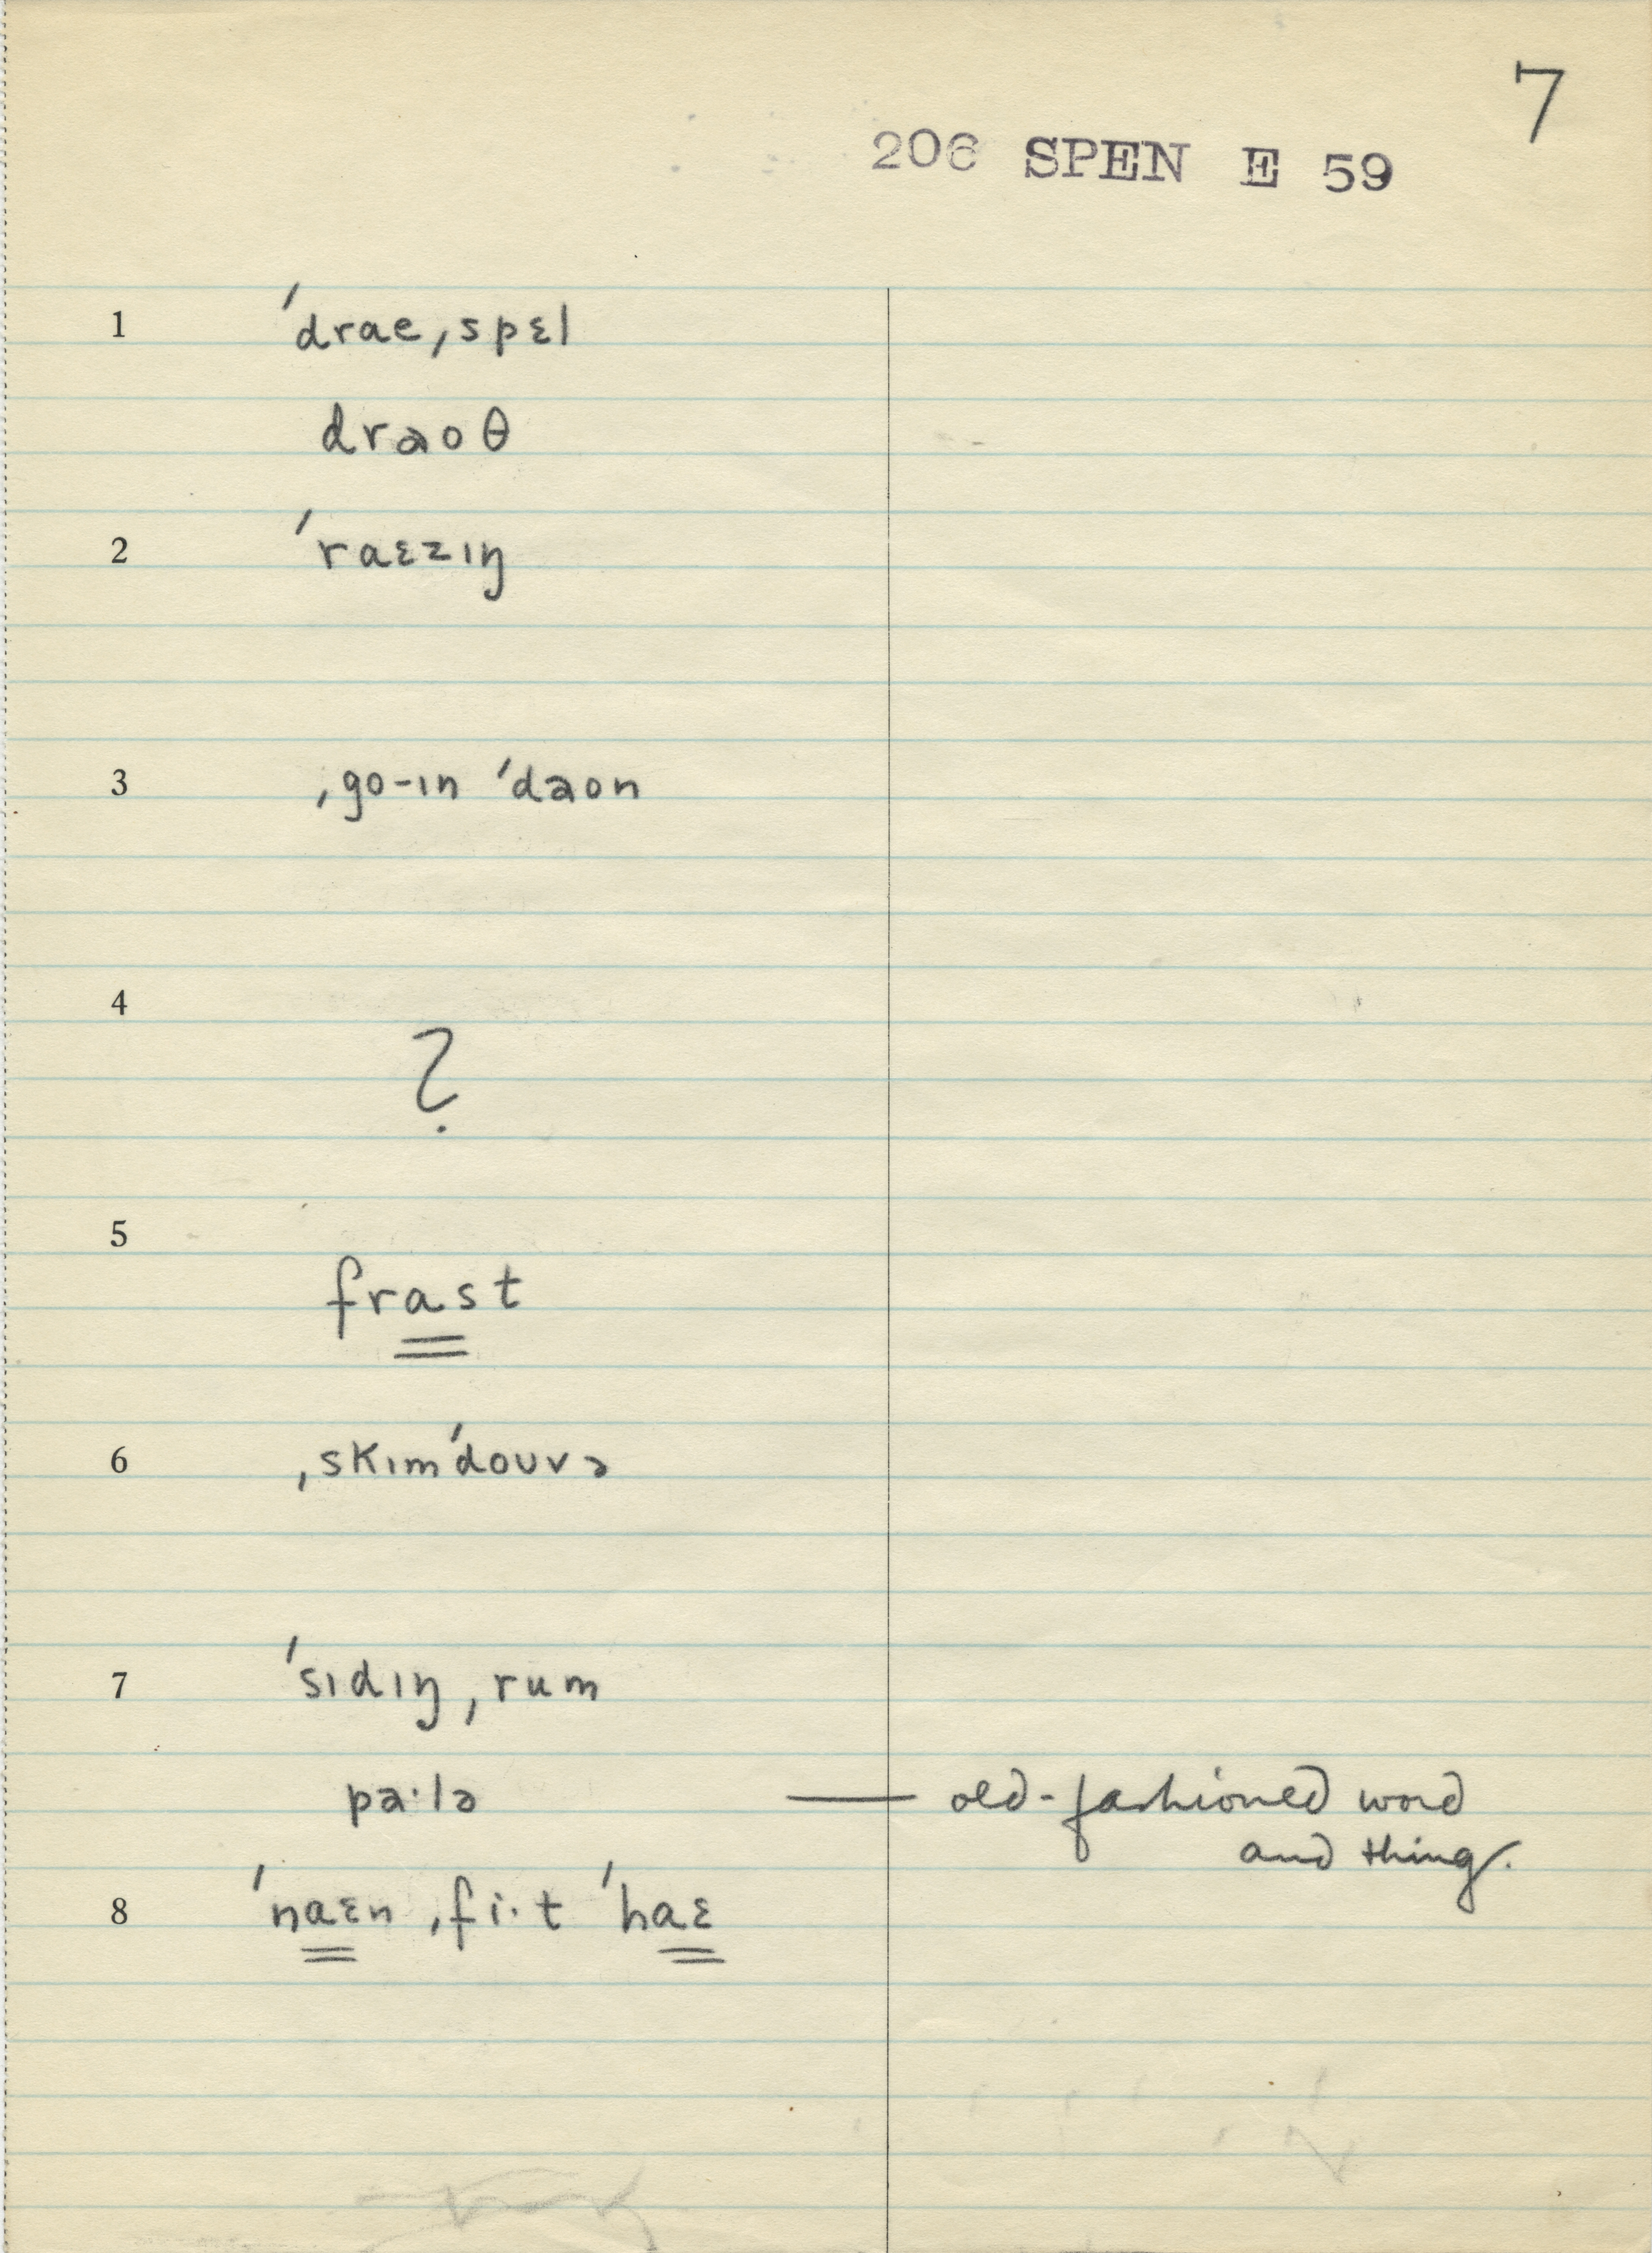 7
206 SPEN E 59
1 ˈdrae ˌspɛl
draoθ
2 ˈraɛzɪŋ
3 ˌgo-ɪn ˈdaon
4 ?
5 frast
6 ˌskɪmˈdouvə
7 ˈsɪdɪŋ ˌrum
pa·lə — old-fashioned word
and thing.
8 ˈnaɛn ˌfi·t ˈhaɛ